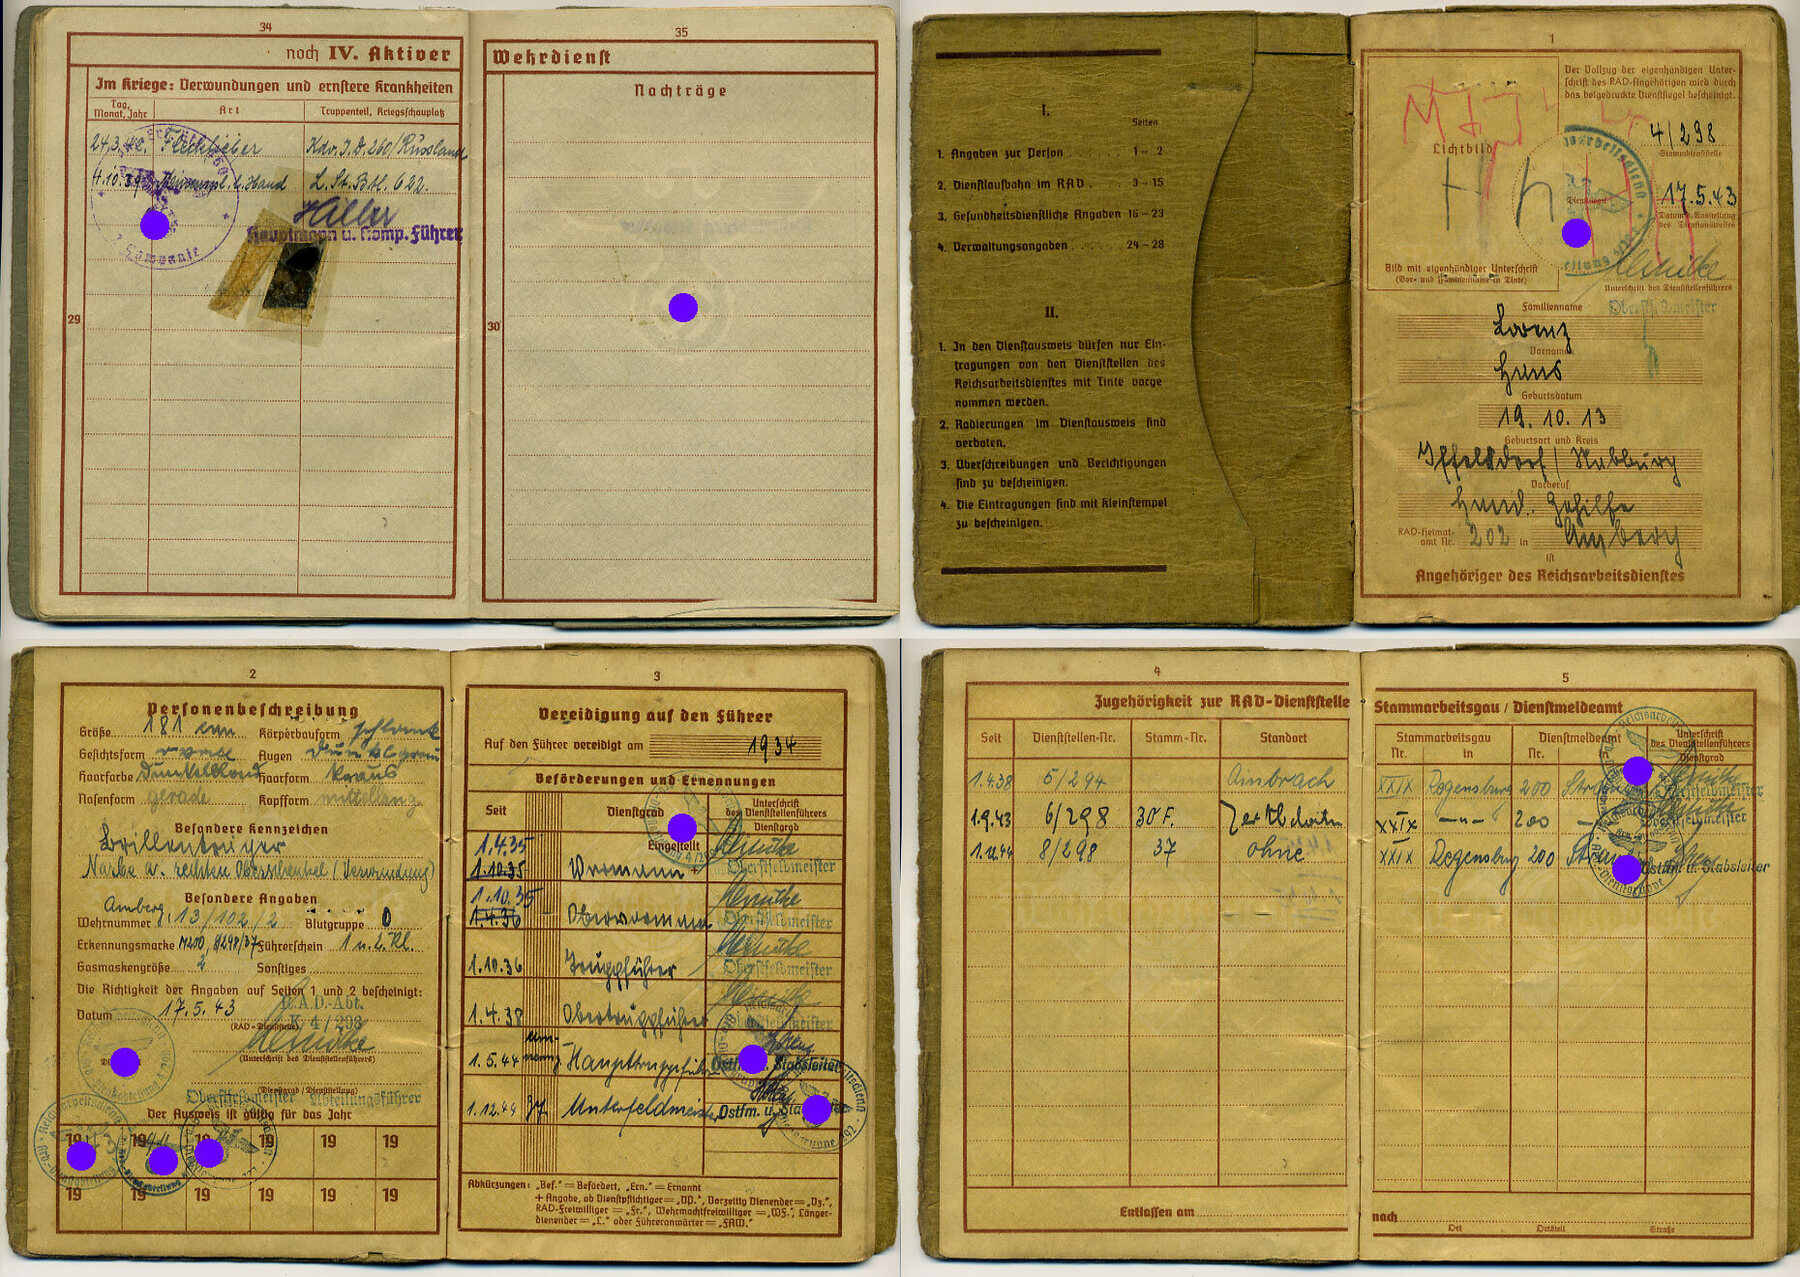 34
noch IV. Aktiver
Im Kriege: Verwundungen und ernstere Krankheiten
Tag, Monat, Jahr
Art
Truppenteil, Kriegsschauplatz
24.3.42. Fleckfieber Kdr. I.D. 260/Russland
4.10.39 b. Hand L. St. Btl. 622.
Hiller
Hauptmann u. Komp. Führer
29
35
Wehrdienst
Nachträge
30
I.
Seiten
1. Angaben zur Person . . . . . 1 – 2
2. Dienstlaufbahn im RAD . 3 – 15
3. Gesundheitsdienstliche Angaben 16 – 23
4. Verwaltungsangaben . . . . . 24 – 28
II.
1. In den Dienstausweis dürfen nur Ein-
tragungen von den Dienststellen des
Reichsarbeitsdienstes mit Tinte vorge-
nommen werden.
2. Radierungen im Dienstausweis sind
verboten.
3. Überschreibungen und Berichtigungen
sind zu bescheinigen.
4. Die Eintragungen sind mit Kleinstempel
zu bescheinigen.
1
Der Vollzug der eigenhändigen Unter-
schrift des RAD-Angehörigen wird durch
das beigedruckte Dienstsiegel bescheinigt.
Lichtbild
4/298
Stammdienststelle
Dienstsiegel
17.5.43
Datum d. Ausstellung
des Dienstausweises
Bild mit eigenhändiger Unterschrift
(Vor- und Familienname in Tinte)
Unterschrift des Dienststellenführers
Oberstfeldmeister
Familienname
Lorenz
Vorname
Hans
Geburtsdatum
19. 10. 13
Geburtsort und Kreis
Iffelsdorf / Nabburg
Vorberuf
Hand. Gehilfe
RAD-Heimat-
amt Nr. 202 in Amberg
ist
Angehöriger des Reichsarbeitsdienstes
2
Personenbeschreibung
Größe 181 cm Körperbauform schlank
Gesichtsform oval Augen dunkelgrau
Haarfarbe dunkelblond Haarform kraus
Nasenform gerade Kopfform mittellang
Besondere Kennzeichen
Brillenträger
Narbe a. rechten Oberschenkel (Verwundung)
Besondere Angaben
Amberg
Wehrnummer 13/102/2 Blutgruppe 0
Erkennungsmarke Führerschein 1 u. 2. Kl.
Gasmaskengröße 2 Sonstiges
Die Richtigkeit der Angaben auf Seiten 1 und 2 bescheinigt:
R.A.D.-Abt.
Datum 17.5.43 K 4/298
(RAD-Dienststelle)
(Unterschrift des Dienststellenführers)
(Dienstgrad / Dienststellung)
Oberstfeldmeister Abteilungsführer
Der Ausweis ist gültig für das Jahr
19 19 19 19 19 19
19 19 19 19 19 19
3
Vereidigung auf den Führer
Auf den Führer vereidigt am 1934
Beförderungen und Ernennungen
Seit
Dienstgrad
Unterschrift
des Dienststellenführers
Dienstgrad
1.4.35 Eingestellt
1.10.35 Vormann Oberstfeldmeister
1.10.35
1.4.36 Obervormann Oberstfeldmeister
1.10.36 Truppführer Oberstfeldmeister
1.4.38 Obertruppführer Oberstfeldmeister
1.5.44 Haupttruppführer Ostfm. u. Stabsleiter
1.12.44 Unterfeldmeister Ostfm. u. Sta
Abkürzungen: „Bef.“ = Befördert, „Ern.“ = Ernannt
+ Angabe, ob Dienstpflichtiger = „DP.“, Vorzeitig Dienender = „Vz.“,
RAD-Freiwilliger = „Fr.“, Wehrmachtfreiwilliger = „WF.“, Länger-
dienender = „L.“ oder Führeranwärter = „FAW.“
4
Zugehörigkeit zur RAD-Dienststelle
Seit Dienststellen-Nr. Stamm-Nr. Standort
1.4.38 5/294 Ambrach
1.9.43 6/298 30 F.
1.12.44 8/298 37 ohne
Entlassen am
5
Stammarbeitsgau / Dienstmeldeamt
Stammarbeitsgau
Nr. in
Dienstmeldeamt
Nr.
Unterschrift
des Dienststellenführers
Dienstgrad
XXIX Regensburg 200 Oberstfeldmeister
XXIX -"- 200 Oberstfeldmeister
XXIX Regensburg 200 Ostfm. u. Stabsleiter
nach
Ort Ortsteil Straße